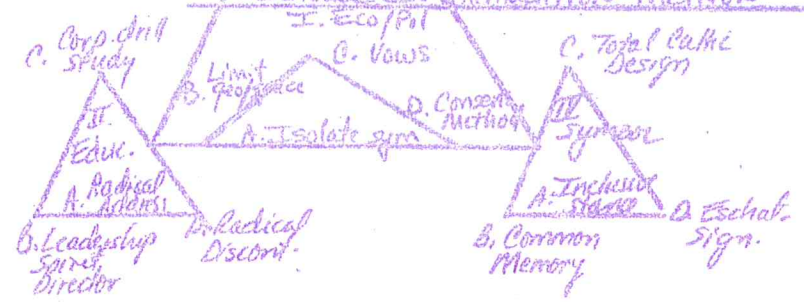 I. Eco/Pol
C. Vows
B. Limit
D. Consens
Method
A. Isolate sym
C. Corp. drill
Study
II.
Educ.
A. Radical
B. Leadership
Director
D. Radical
Discont.
C. Total Cultic
Design
IV
A. Inclusive
B. Common
Memory
D. Eschat.
Sign.